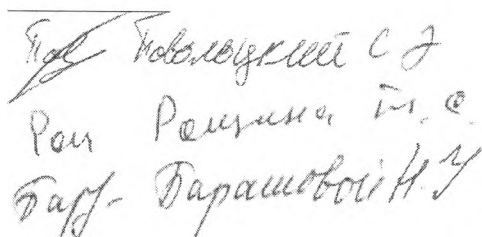 Пов Поволоцкий С Э
Рощ Рощина Т. С.
Бару- Барашовой Н. У